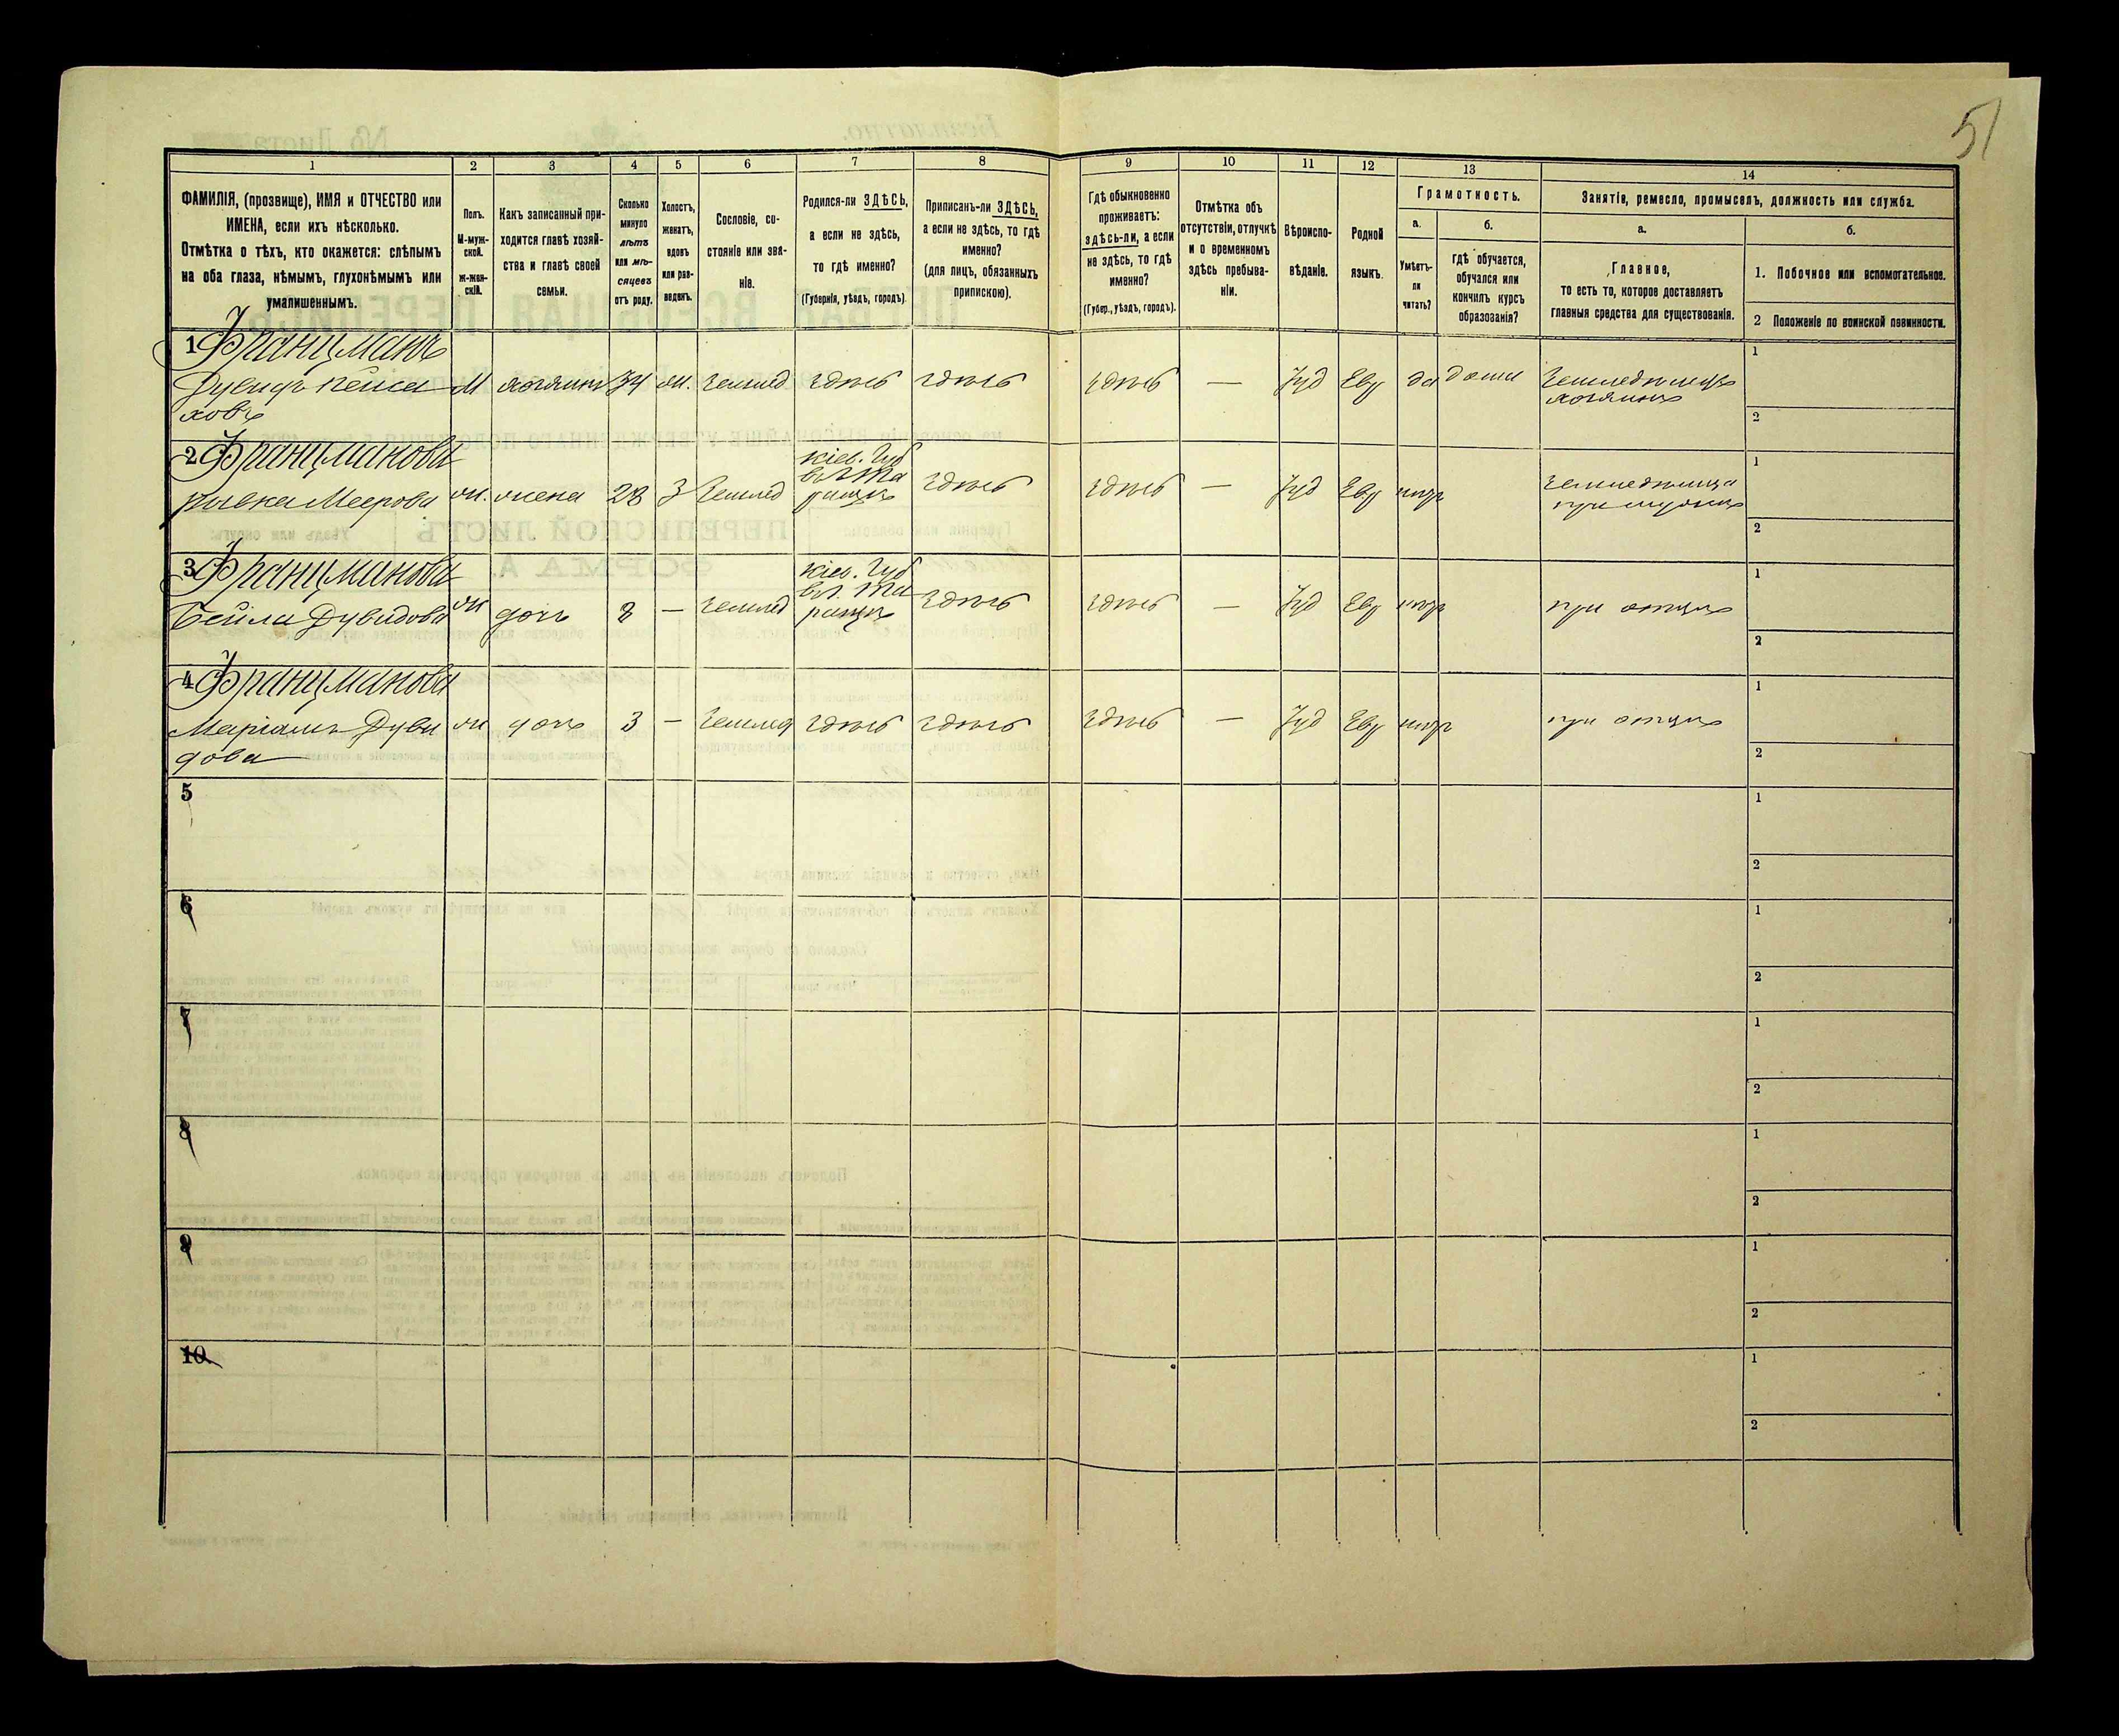 51
1 2 3 4 5 6 7 8 9 10 11 12 13 14
ФАМИЛІЯ, (прозвище), ИМЯ и ОТЧЕСТВО или
ИМЕНА, если ихъ нѣсколько.
Отмѣтка о тѣхъ, кто окажется: слѣпымъ
на оба глаза, нѣмымъ, глухонѣмымъ или
умалишеннымъ.
Полъ.
М-муж-
ской.
Ж-жен-
скій.
Какъ записанный при-
ходится главѣ хозяй-
ства и главѣ своей
семьи.
Сколько
минуло
лѣтъ
или мѣ-
сяцевъ
отъ роду.
Холостъ,
женатъ,
вдовъ
или раз-
веденъ.
Сословіе, со-
стояніе или зва-
ніе.
Родился-ли ЗДѢСЬ,
а если не здѣсь,
то гдѣ именно?
(Губернія, уѣздъ, городъ).
Приписанъ-ли ЗДѢСЬ,
а если не здѣсь, то гдѣ
именно?
(для лицъ, обязанныхъ
припискою).
Гдѣ обыкновенно
проживаетъ:
здѣсь-ли, а если
не здѣсь, то гдѣ
именно?
(Губер., уѣздъ, городъ).
Отмѣтка объ
отсутствіи, отлучкѣ
и о временномъ
здѣсь пребыва-
ніи.
Вѣроиспо-
вѣданіе.
Родной
языкъ.
Грамотность.
а.
Умѣетъ-
ли
читать?
б.
гдѣ обучается,
обучался или
кончилъ курсъ
образованія?
Занятіе, ремесло, промыселъ, должность или служба.
а.
Главное,
то есть то, которое доставляетъ
главныя средства для существованія.
б.
1. Побочное или вспомогательное.
2 Положеніе по воинской повинности.
1 Францманъ
Дувидъ Пейса М хозяинъ 34 ж. Землед здѣсь здѣсь здѣсь — Іуд Евр да дома Земледѣлецъ
ховъ хозяинъ
1
2
2 Францманова Кіев. Губ
Рывка Меерова ж. жена 28 З Землед здѣсь здѣсь — Іуд Евр
1
2
3 Францманова Кіев. Губ
Бейла Дувидова ж дочь 8 — Землед здѣсь здѣсь — Іуд Евр при отцѣ
1
2
4 Францманова
Маріамъ Дуви ж дочь 3 — Землед здѣсь здѣсь здѣсь — Іуд Евр при отцѣ
дова
1
2
5
1
2
6
1
2
7
1
2
8
1
2
9
1
2
10
1
2